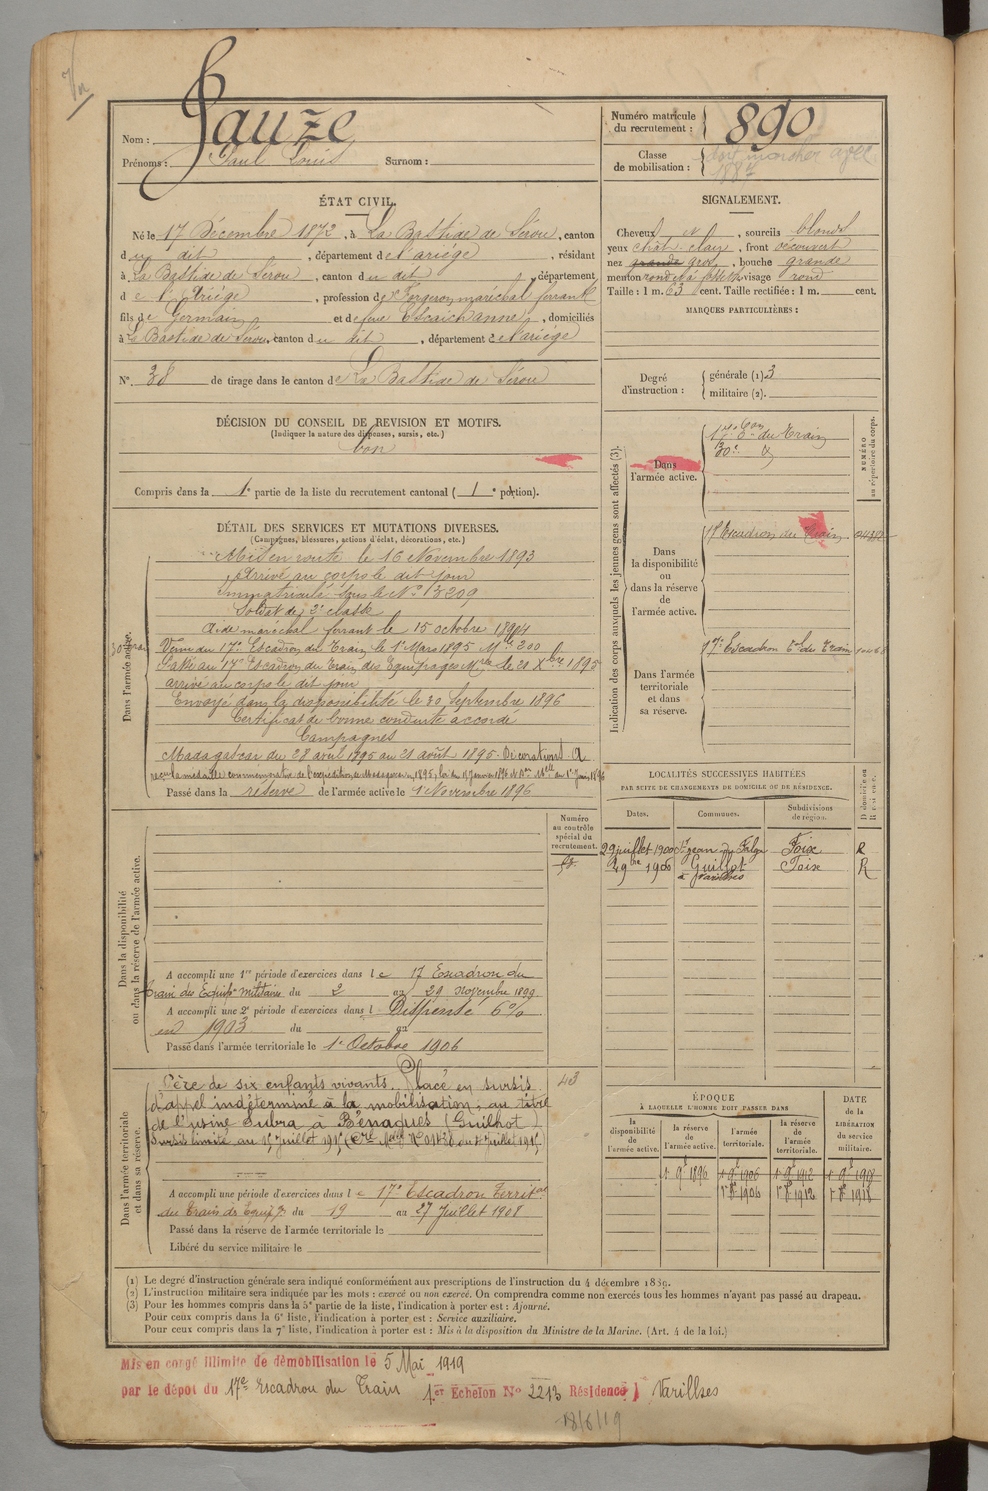 Nom : Sauze
Prénoms : Paul Louis Surnom :
Numéro matricule du recrutement : 890
Classe de mobilisation : doit marcher avec 1887
ÉTAT CIVIL.
Né le 17 Décembre 1872, à La Bastide de Sérou, canton
du dit, département de l'Ariége, résidant
à La Bastide de Sérou, canton du dit, département
de l'Ariége, profession de forgeron, maréchal ferrant
fils de Germain et de feue Escaich Anne, domiciliés
à La Bastide de Sérou, canton du dit, département de l'Ariége
N° 38 de tirage dans le canton de La Bastide de Sérou
SIGNALEMENT.
Cheveux et, sourcils blonds
yeux chât. clair, front découvert
nez grande gros, bouche grande
menton rond et à fossette visage rond
Taille : 1 m. 63 cent. Taille rectifiée : 1 m. cent.
MARQUES PARTICULIÈRES :
Degré d'instruction : générale (1) 3
militaire (2).
DÉCISION DU CONSEIL DE REVISION ET MOTIFS.
(Indiquer la nature des dispenses, sursis, etc.)
bon
Compris dans la 1e partie de la liste du recrutement cantonal (1e portion).
DÉTAIL DES SERVICES ET MUTATIONS DIVERSES.
(Campagnes, blessures, actions d'éclat, décorations, etc.)
Dans l'armée active.
Mis en route le 16 Novembre 1893
Arrivé au corps le dit jour
Immatriculé sous le N° 3209
Soldat de 2e classe
Aide maréchal ferrant le 15 octobre 1894
Venu du 17e Escadron du Train le 1er Mars 1895 Mle 200
Passé au 17e Escadron du Train des Equipages Mres le 20 Xbre 1895
arrivé au corps le dit jour
Envoyé dans la disponibilité le 30 Septembre 1896
Certificat de bonne conduite accordé
Campagnes
Madagascar du 28 avril 1895 au 21 août 1895. Décorations. A
reçu la médaille commémorative de l'expédition de Madagascar 1895, loi du 15 Janvier 1896
Passé dans la réserve de l'armée active le 1 Novembre 1896
Indication des corps auxquels les jeunes gens sont affectés (3).
NUMÉRO au répertoire du corps.
Dans l'armée active.
du Train
30e d
Dans la disponibilité ou dans la réserve de l'armée active.
17e Escadron du Train
Dans l'armée territoriale et dans sa réserve.
17e Escadron tal du Train
LOCALITÉS SUCCESSIVES HABITÉES
PAR SUITE DE CHANGEMENTS DE DOMICILE OU DE RÉSIDENCE.
Dates. Communes. Subdivisions de région. D domicile ou R résidence.
29 juillet 1900 St Jean du Falga Foix R
2 9bre 1906 Guillot à Varilhes Foix R
Dans la disponibilité ou dans la réserve de l'armée active.
Numéro au contrôle spécial du recrutement.
A accompli une 1re période d'exercices dans le 17 Escadron du
Train des Equip. militaire du 2 au 29 novembre 1899
A accompli une 2e période d'exercices dans l Dispensé 6%
en 1903 du au
Passé dans l'armée territoriale le 1er Octobre 1906
Dans l'armée territoriale et dans sa réserve.
43
Père de six enfants vivants. Placé en sursis
d'appel indéterminé à la mobilisation, au titre
de l'usine Subra à Bénagues (Guilhot)
A accompli une période d'exercices dans le 17e Escadron Territal
du Train des Equip. du 19 au 27 Juillet 1908
Passé dans la réserve de l'armée territoriale le
Libéré du service militaire le
ÉPOQUE
À LAQUELLE L'HOMME DOIT PASSER DANS
la disponibilité de l'armée active. la réserve de l'armée active. l'armée territoriale. la réserve de l'armée territoriale. DATE de la LIBÉRATION du service militaire.
1 9e 1896 1 9e 1906 1 9e 1912 1 9e 1918
1 Xe 1906 1 Xe 1912 1 Xe 1918
(1) Le degré d'instruction générale sera indiqué conformément aux prescriptions de l'instruction du 4 décembre 1889.
(2) L'instruction militaire sera indiquée par les mots : exercé ou non exercé. On comprendra comme non exercés tous les hommes n'ayant pas passé au drapeau.
(3) Pour les hommes compris dans la 5e partie de la liste, l'indication à porter est : Ajourné.
Pour ceux compris dans la 6e liste, l'indication à porter est : Service auxiliaire.
Pour ceux compris dans la 7e liste, l'indication à porter est : Mis à la disposition du Ministre de la Marine. (Art. 4 de la loi.)
Mis en congé illimité de démobilisation le 5 Mai 1919
par le dépôt du 17e Escadron du Train 1er Echelon N° 2213 Résidence) Varilhes
18/6/19